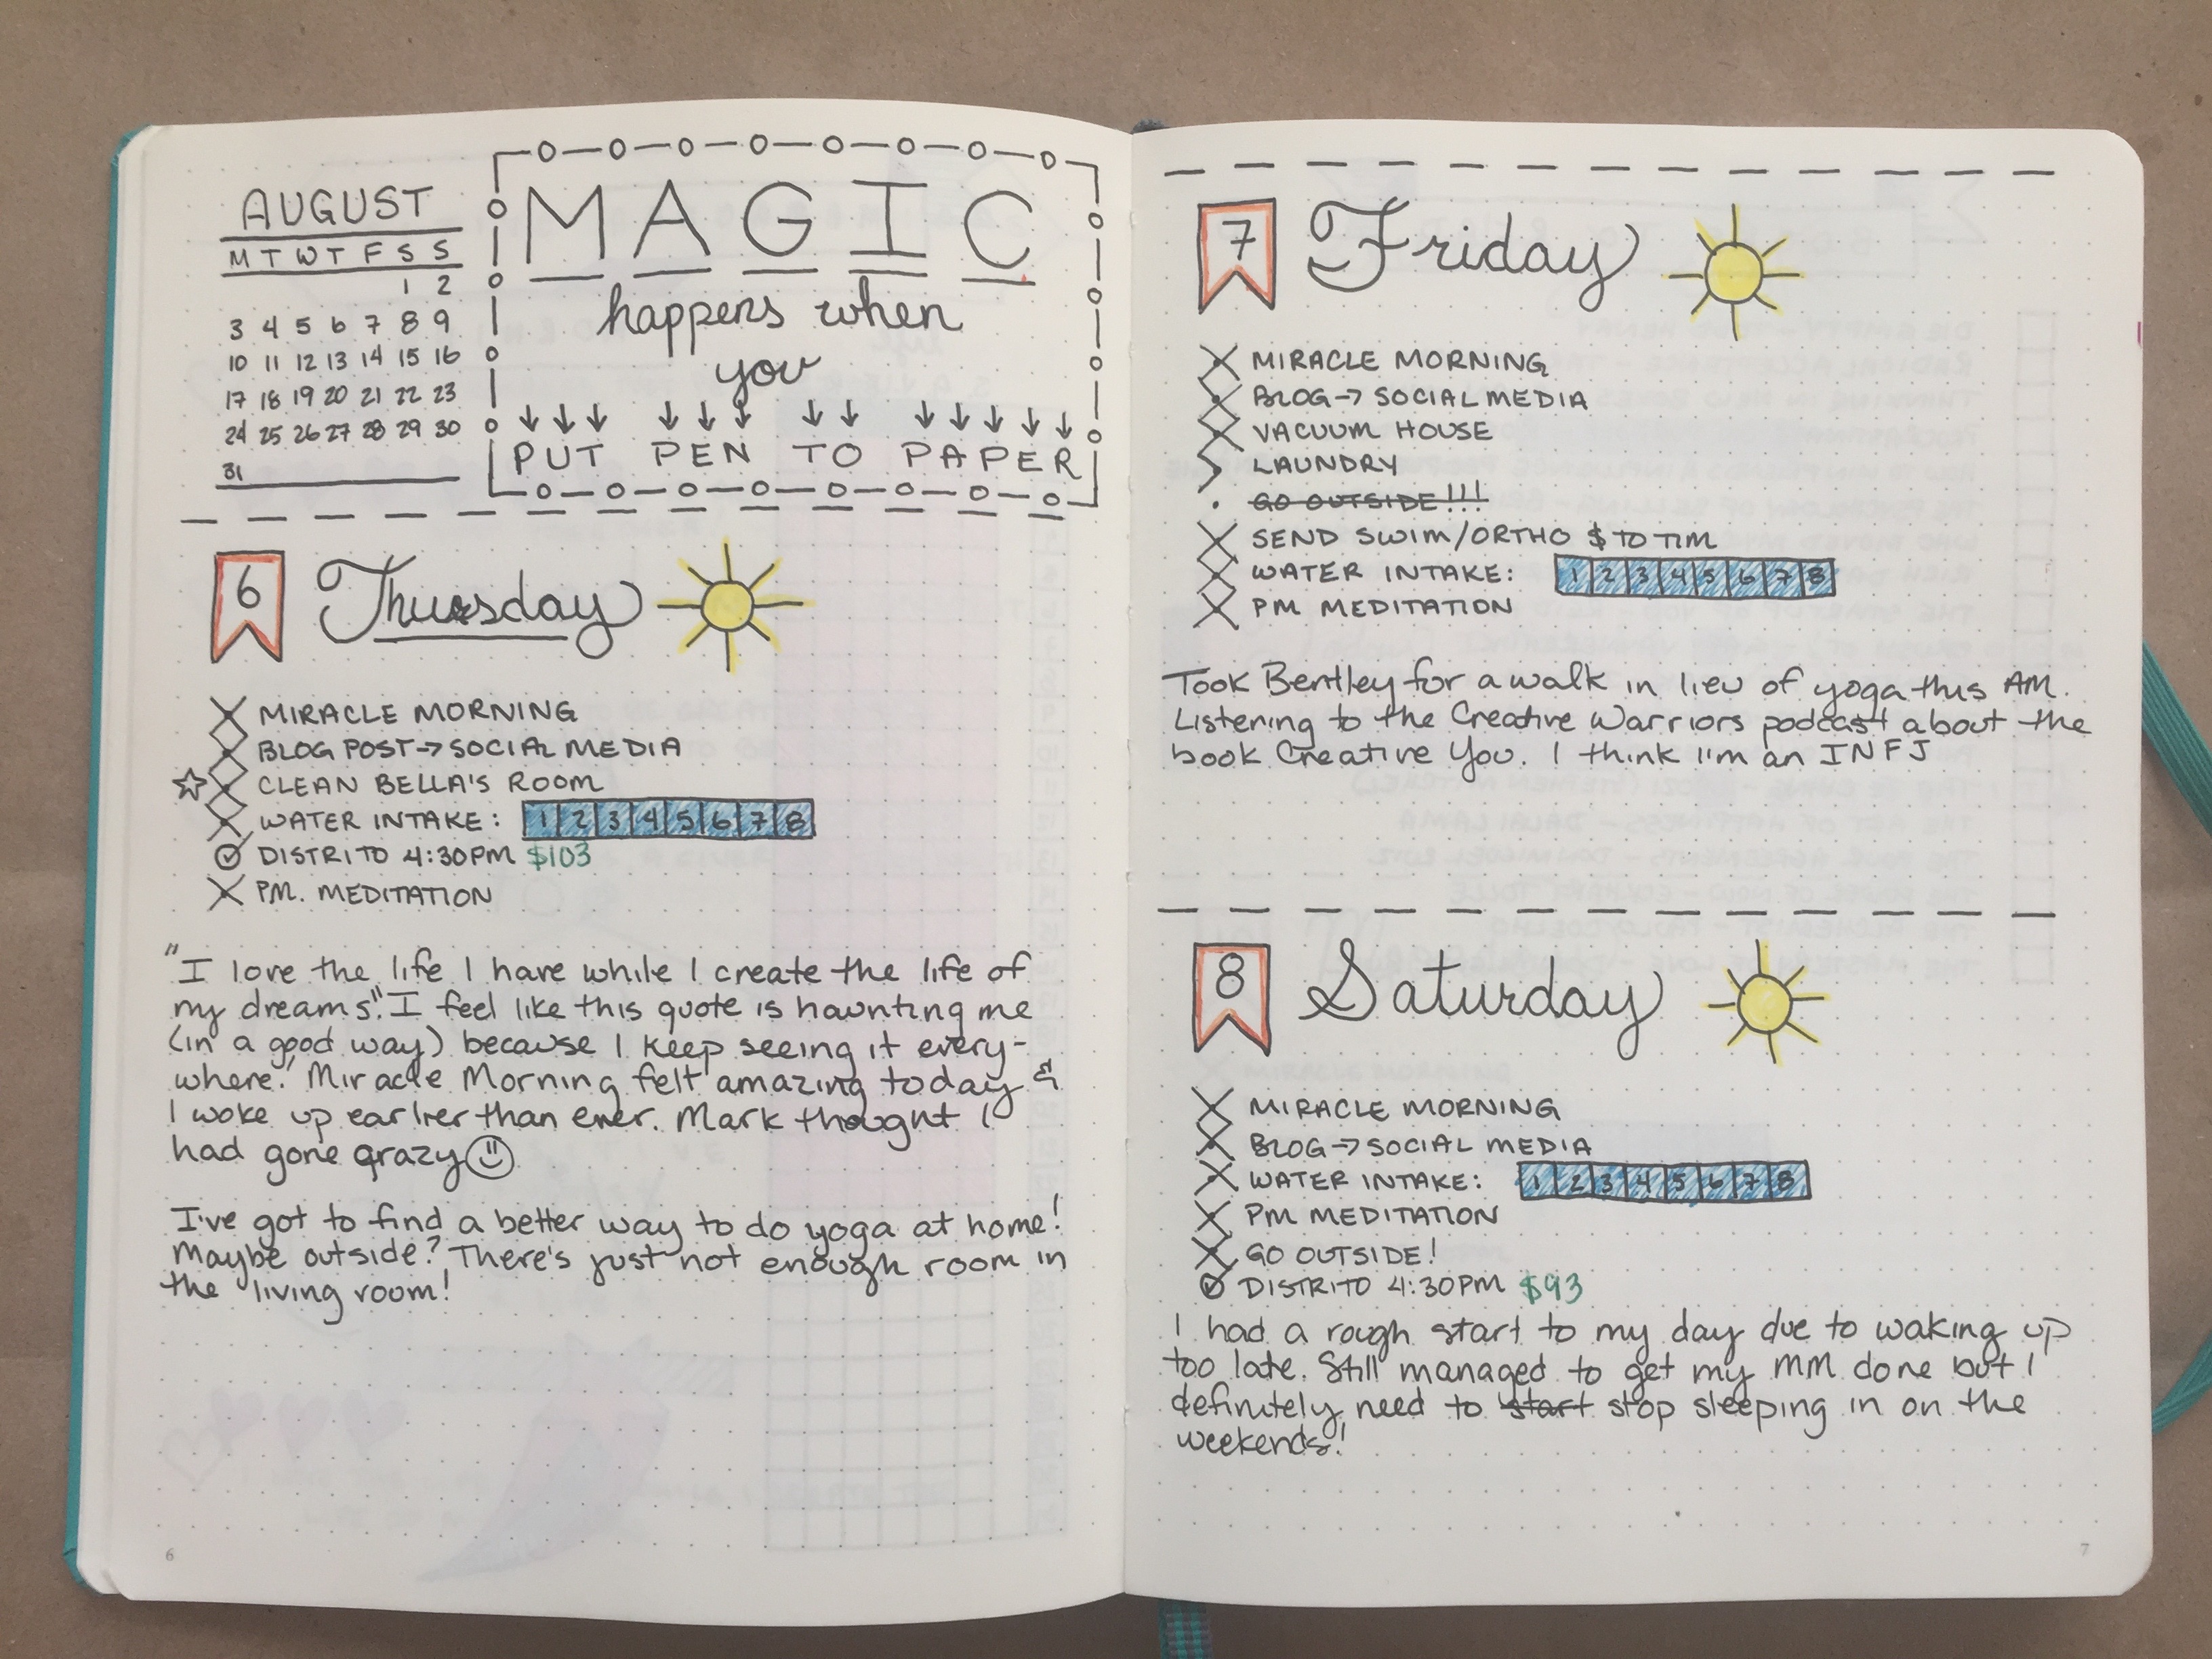 AUGUST
M T W T F S S
1 2
3 4 5 6 7 8 9
10 11 12 13 14 15 16
17 18 19 20 21 22 23
24 25 26 27 28 29 30
31
MAGIC
happens when
you
PUT PEN TO PAPER
6 Thursday
MIRACLE MORNING
BLOG POST → SOCIAL MEDIA
CLEAN BELLA'S ROOM
WATER INTAKE: 1 2 3 4 5 6 7 8
DISTRITO 4:30PM $103
PM. MEDITATION
"I love the life I have while I create the life of
my dreams". I feel like this quote is haunting me
(in a good way) because I keep seeing it every-
where! Miracle Morning felt amazing today &
I woke up earlier than ever. Mark thought I
had gone crazy
I've got to find a better way to do yoga at home!
Maybe outside? There's just not enough room in
the living room!
6
7 Friday
MIRACLE MORNING
BLOG → SOCIAL MEDIA
VACUUM HOUSE
LAUNDRY
GO OUTSIDE!!!
SEND SWIM/ORTHO $ TO TIM
WATER INTAKE: 1 2 3 4 5 6 7 8
PM MEDITATION
Took Bentley for a walk in lieu of yoga this AM.
Listening to the Creative Warriors podcast about the
book Creative You. I think I'm an INFJ
8 Saturday
MIRACLE MORNING
BLOG → SOCIAL MEDIA
WATER INTAKE: 1 2 3 4 5 6 7 8
PM MEDITATION
GO OUTSIDE!
DISTRITO 4:30PM $93
I had a rough start to my day due to waking up
too late. Still managed to get my MM done but I
definitely need to start stop sleeping in on the
weekends!
7